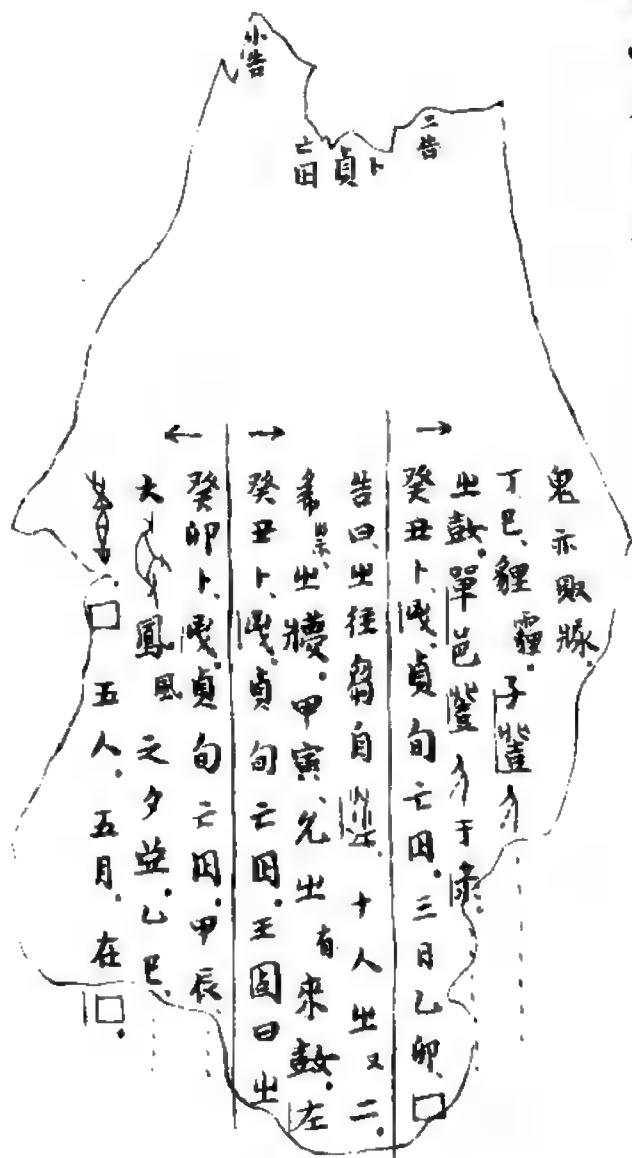 小告
二告
卜
貞
亡囚
癸丑卜、貞旬亡囚。三日乙卯、□
㞢。單邑于彔。
丁巳、貍霾。子
鬼亦
癸丑卜、貞旬亡囚。王固曰㞢
祟㞢。甲寅、允㞢有來。左
告曰、㞢往芻自、十人㞢又二。
癸卯卜、貞旬亡囚。甲辰
大鳳風之夕。乙巳、
。□五人。五月。在□。